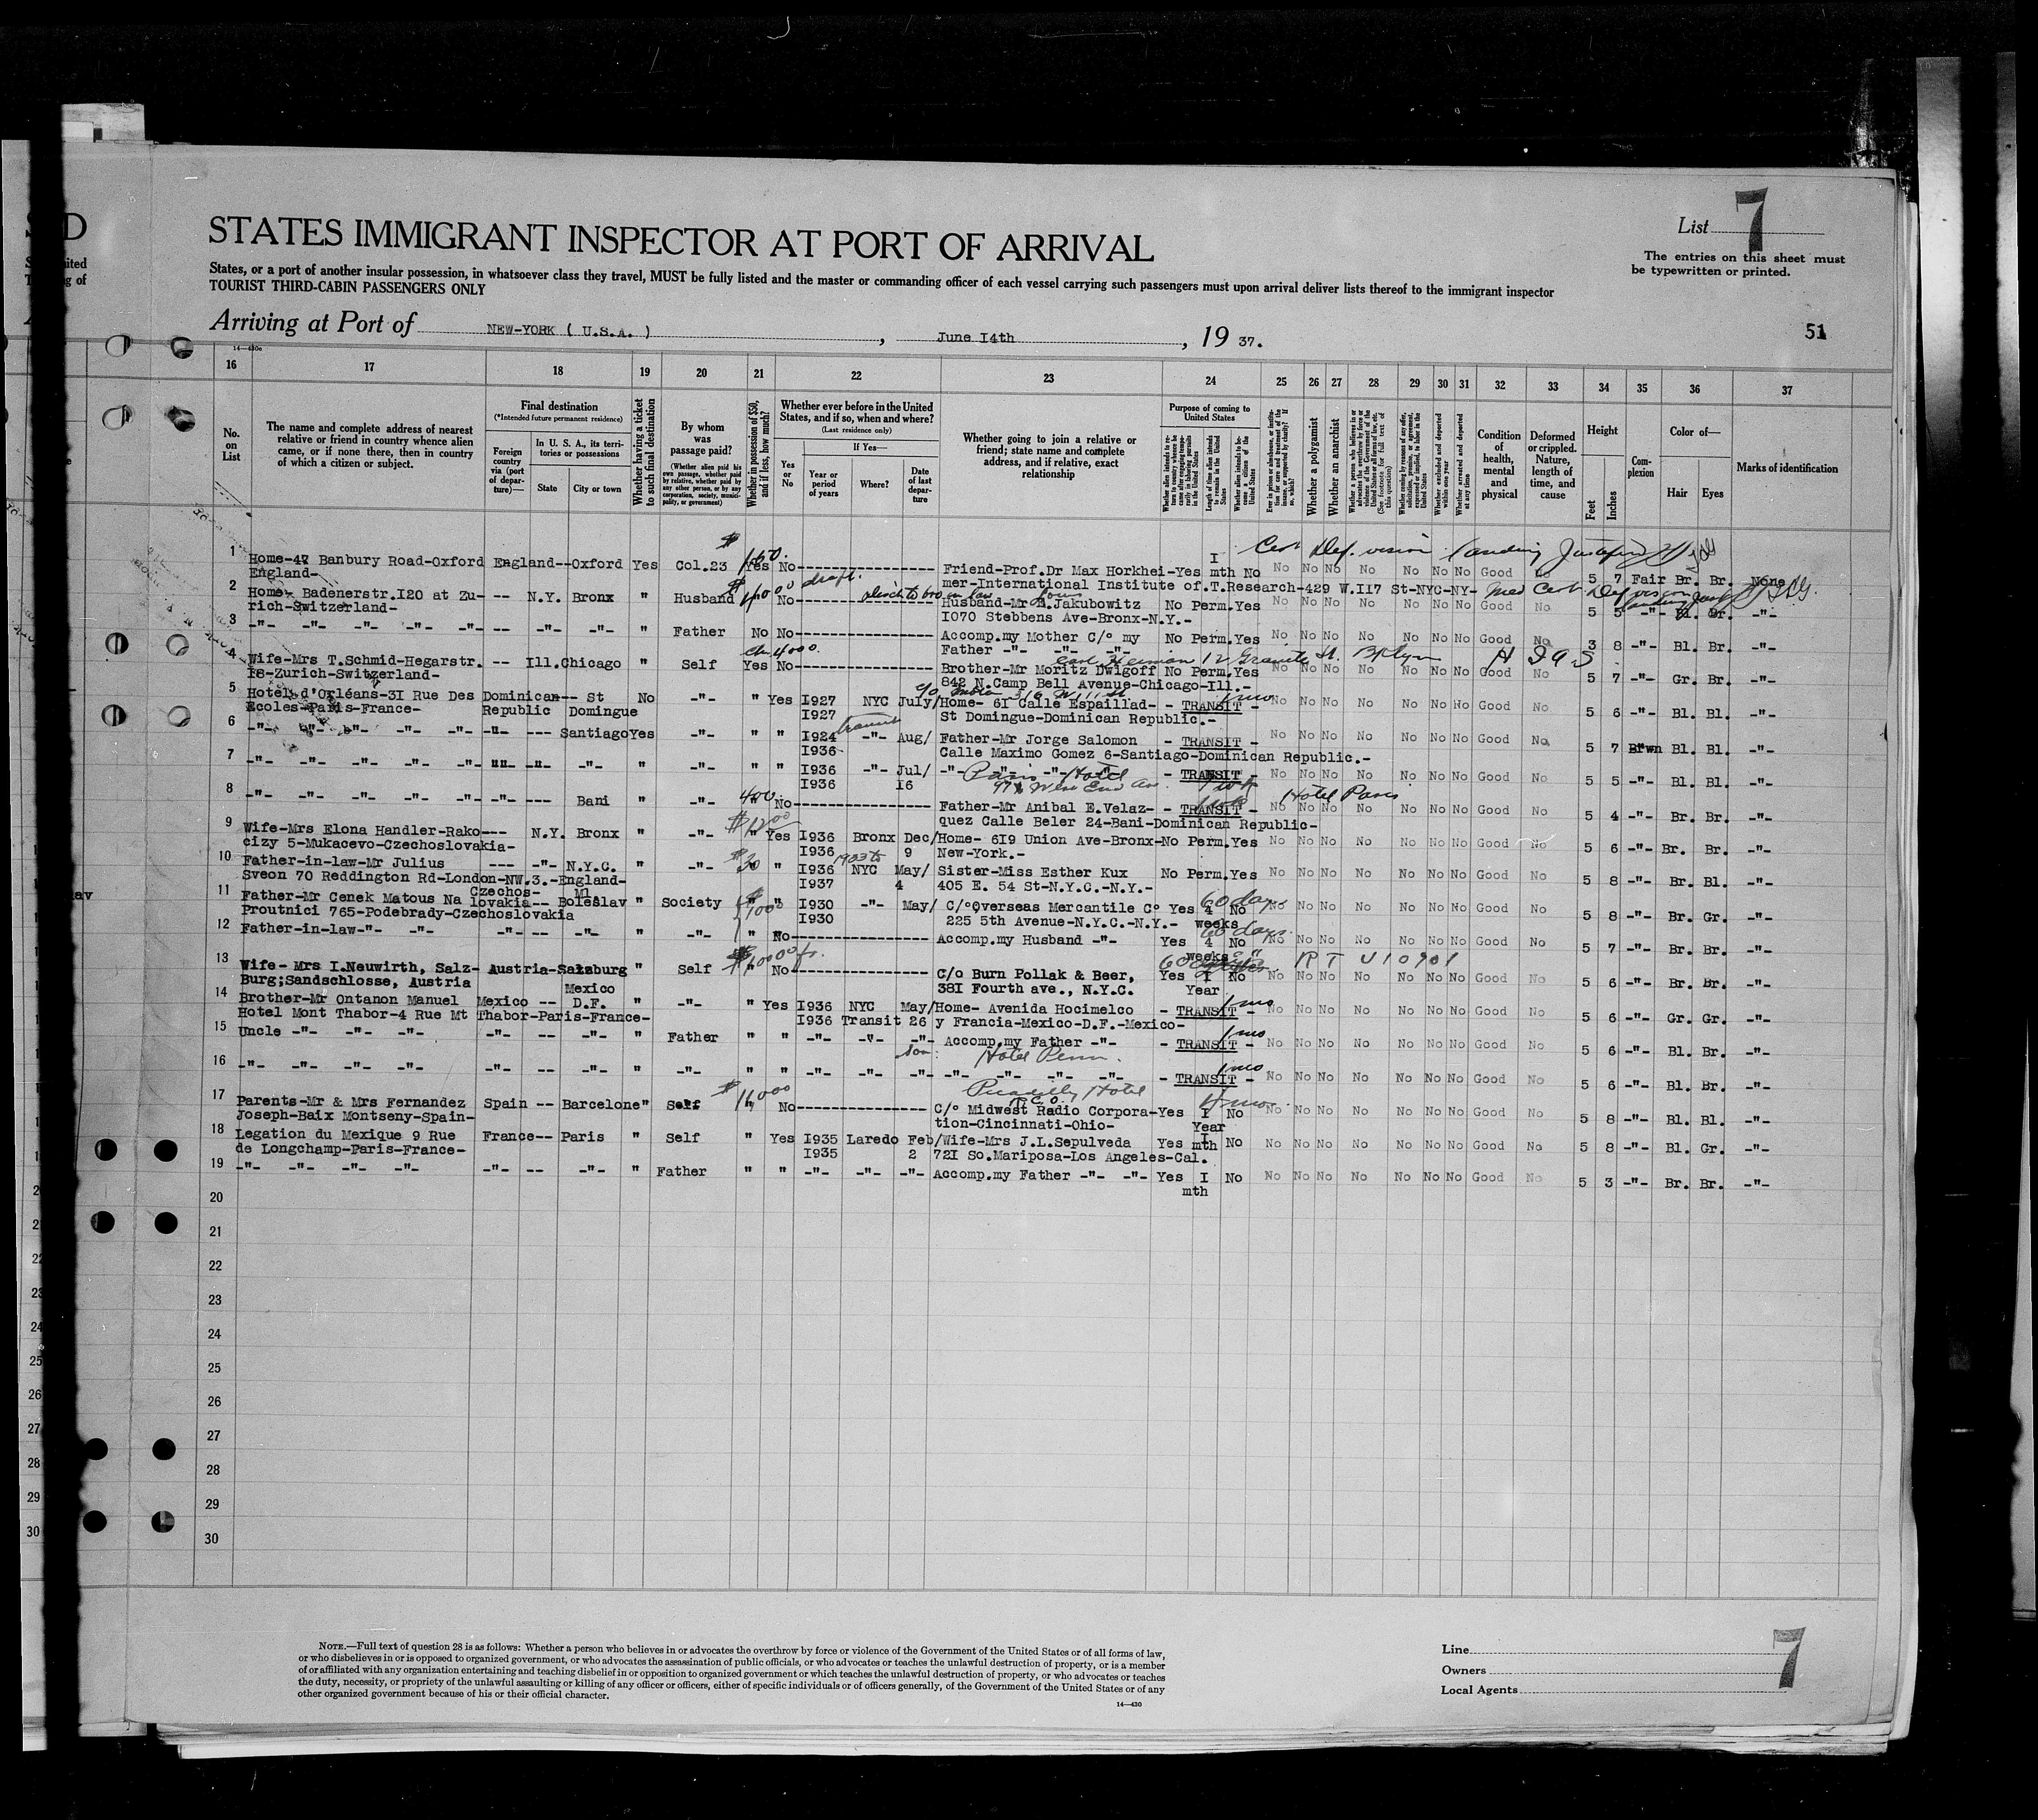 STATES IMMIGRANT INSPECTOR AT PORT OF ARRIVAL
List 7
The entries on this sheet must
be typewritten or printed.
States, or a port of another insular possession, in whatsoever class they travel, MUST be fully listed and the master or commanding officer of each vessel carrying such passengers must upon arrival deliver lists thereof to the immigrant inspector
TOURIST THIRD-CABIN PASSENGERS ONLY
Arriving at Port of NEW-YORK ( U.S.A. ), June I4th, 19 37.
51
16 17 18 19 20 21 22 23 24 25 26 27 28 29 30 31 32 33 34 35 36 37
No. on List
The name and complete address of nearest relative or friend in country whence alien came, or if none there, then in country of which a citizen or subject.
Final destination
(*Intended future permanent residence)
Foreign country via (port of departure)—
In U. S. A., its territories or possessions
State
City or town
Whether having a ticket to such final destination
By whom was passage paid?
(Whether alien paid his own passage, whether paid by relative, whether paid by any other person, or by any corporation, society, municipality, or government)
Whether in possession of $50, and if less, how much?
Whether ever before in the United States, and if so, when and where?
(Last residence only)
Yes or No
If Yes—
Year or period of years
Where?
Date of last departure
Whether going to join a relative or friend; state name and complete address, and if relative, exact relationship
Purpose of coming to United States
Length of time alien intends to remain in the United States
Whether a polygamist
Whether an anarchist
Whether excluded and deported within one year
Whether arrested and deported at any time
Condition of health, mental and physical
Deformed or crippled. Nature, length of time, and cause
Height
Feet
Inches
Complexion
Color of—
Hair
Eyes
Marks of identification
1 Home-47 Banbury Road-Oxford England--Oxford Yes Col.23 Yes No---------------- Friend-Prof.Dr Max Horkhei-Yes I mth No No No No No No No No Good No 5 7 Fair Br. Br. None
England- mer-International Institute of.T.Research-429 W.II7 St-NYC-NY-
2 Home- Badenerstr.I20 at Zu- -- N.Y. Bronx " Husband No---------------- Husband-Mr A.Jakubowitz No Perm.Yes No No No No No No No Good No 5 5 -"- Bl. Br. -"-
rich-Switzerland- I070 Stebbens Ave-Bronx-N.Y.-
3 -"- -"- -"- -"- -"- -- -"- -"- " Father No No---------------- Accomp.my Mother C/o my No Perm.Yes No No No No No No No Good No 3 8 -"- Bl. Br. -"-
Father -"- -"- -"-
4 Wife-Mrs T.Schmid-Hegarstr. -- Ill.Chicago " Self Yes No---------------- Brother-Mr Moritz Dwigoff No Perm.Yes No No No No No No No Good No 5 7 -"- Gr. Br. -"-
I8-Zurich-Switzerland- 842 N.Camp Bell Avenue-Chicago-Ill.-
5 Hotel d'Orléans-3I Rue Des Dominican-- St No -"- " Yes I927 NYC July/ Home- 6I Calle Espaillad- - TRANSIT - No No No No No No No Good No 5 6 -"- Bl. Bl. -"-
Ecoles-Paris-France- Republic Domingue I927 St Domingue-Dominican Republic.-
6 -"- -"- -"- -"- -"- -"- --- Santiago Yes -"- " " I924 -"- Aug/ Father-Mr Jorge Salomon - TRANSIT - No No No No No No No Good No 5 7 Brwn Bl. Bl. -"-
I936 Calle Maximo Gomez 6-Santiago-Dominican Republic.-
7 -"- -"- -"- -"- -"- -"- -"- -"- " -"- " " I936 -"- Jul/ -"- -"- -"- - TRANSIT - No No No No No No No Good No 5 5 -"- Bl. Bl. -"-
I936 I6
8 -"- -"- -"- -"- -"- -"- --- Bani " -"- " No---------------- Father-Mr Anibal E.Velaz- - TRANSIT - No No No No No No No Good No 5 4 -"- Br. Br. -"-
quez Calle Beler 24-Bani-Dominican Republic-
9 Wife-Mrs Elona Handler-Rako--- N.Y. Bronx " -"- " Yes I936 Bronx Dec/ Home- 6I9 Union Ave-Bronx-No Perm.Yes No No No No No No No Good No 5 6 -"- Br. Br. -"-
cizy 5-Mukacevo-Czechoslovakia- I936 9 New-York.-
10 Father-in-law-Mr Julius --- -"- N.Y.C. " -"- " I936 NYC May/ Sister-Miss Esther Kux No Perm.Yes No No No No No No No Good No 5 8 -"- Br. Bl. -"-
Sveon 70 Reddington Rd-London-NW.3.-England- I937 4 405 E. 54 St-N.Y.C.-N.Y.-
11 Father-Mr Cenek Matous Na Czechoslovakia-- Ml. Boleslav " Society " " I930 -"- May/ C/o Overseas Mercantile Co Yes 4 weeks No No No No No No No No Good No 5 8 -"- Br. Gr. -"-
Proutnici 765-Podebrady-Czechoslovakia I930 225 5th Avenue-N.Y.C.-N.Y.-
12 Father-in-law-"- -"- -"- -- -"- " -"- " No---------------- Accomp.my Husband -"- Yes 4 weeks No No No No No No No No Good No 5 7 -"- Br. Br. -"-
13 Wife- Mrs I.Neuwirth, Salz- Austria-Salzburg " Self " No---------------- C/o Burn Pollak & Beer, Yes I Year No No No No No No No No Good No 5 6 -"- Br. Br. -"-
Burg;Sandschlosse, Austria 38I Fourth ave., N.Y.C.
14 Brother-Mr Ontanon Manuel Mexico -- Mexico D.F. " -"- " Yes I936 NYC May/ Home- Avenida Hocimelco - TRANSIT - No No No No No No No Good No 5 6 -"- Gr. Gr. -"-
Hotel Mont Thabor-4 Rue Mt Thabor-Paris-France- I936 Transit 26 y Francia-Mexico-D.F.-Mexico-
15 Uncle -"- -"- -"- -"- -- -"- " Father " " -"- -"- -"- Accomp.my Father -"- - TRANSIT - No No No No No No No Good No 5 6 -"- Bl. Br. -"-
Hotel Penn.
16 -"- -"- -"- -"- -"- -- -"- " -"- " " -"- -"- -"- -"- -"- -"- -"- - TRANSIT - No No No No No No No Good No 5 6 -"- Bl. Br. -"-
17 Parents-Mr & Mrs Fernandez Spain -- Barcelone " Self No---------------- C/o Midwest Radio Corpora-Yes I Year No No No No No No No No Good No 5 8 -"- Bl. Bl. -"-
Joseph-Baix Montseny-Spain- tion-Cincinnati-Ohio-
18 Legation du Mexique 9 Rue France-- Paris " Self " Yes I935 Laredo Feb/ Wife-Mrs J.L.Sepulveda Yes I mth No No No No No No No No Good No 5 8 -"- Bl. Gr. -"-
de Longchamp-Paris-France- I935 2 72I So.Mariposa-Los Angeles-Cal.
19 -"- -"- -"- -"- -"- -- -"- " Father " " -"- -"- -"- Accomp.my Father -"- -"- Yes I mth No No No No No No No No Good No 5 3 -"- Br. Br. -"-
20
21
22
23
24
25
26
27
28
29
30
NOTE.—Full text of question 28 is as follows: Whether a person who believes in or advocates the overthrow by force or violence of the Government of the United States or of all forms of law,
or who disbelieves in or is opposed to organized government, or who advocates the assassination of public officials, or who advocates or teaches the unlawful destruction of property, or is a member
of or affiliated with any organization entertaining and teaching disbelief in or opposition to organized government or which teaches the unlawful destruction of property, or who advocates or teaches
the duty, necessity, or propriety of the unlawful assaulting or killing of any officer or officers, either of specific individuals or of officers generally, of the Government of the United States or of any
other organized government because of his or their official character.
14—430
Line
Owners
Local Agents
7